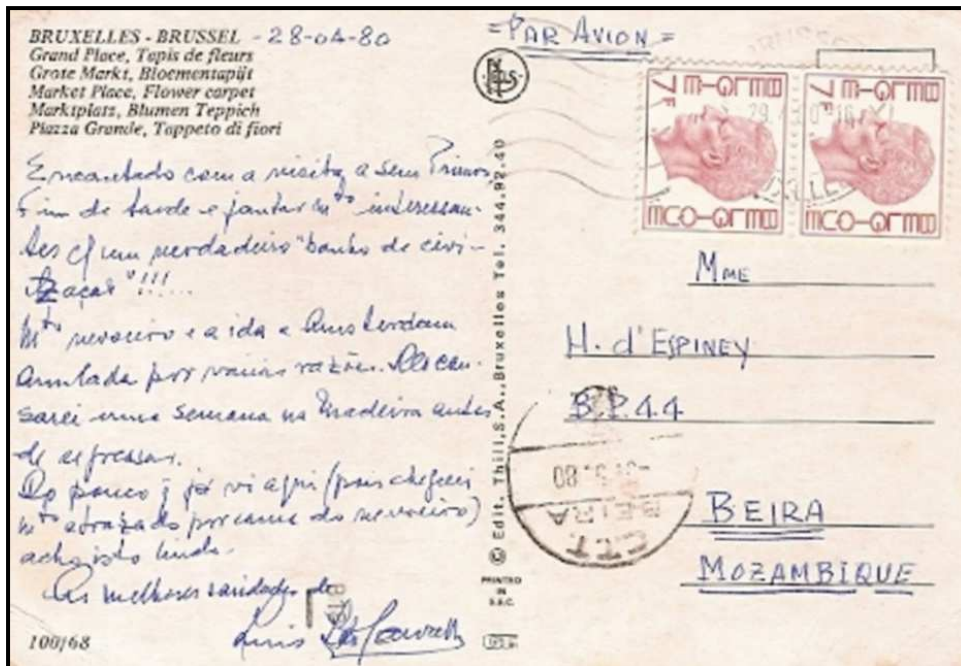 BRUXELLES - BRUSSEL - 28-04-80
Grand Place, Tapis de fleurs
Grote Markt, Bloementapijt
Market Place, Flower carpet
Marktplatz, Blumen Teppich
Piazza Grande, Tappeto di fiori
Encantado com a visita a seus Primos
Fim de tarde e jantar mto interessan-
tes c/ um verdadeiro "banho de civi-
lização"!!!...
Mto nevoeiro e a ida a Amsterdam
anulada por várias razões. Descan-
sarei uma semana na Madeira antes
de regressar.
Do pouco q já vi aqui (pois cheguei
mto atrazado por causa do nevoeiro)
acho isto lindo.
As melhores saudades de
Luis
100/68
© Edit. Thill, S.A., Bruxelles Tel. 344.92.40
PRINTED
IN
E.E.C.
= PAR AVION =
BELGIE-BELGIQUE
7F
BELGIE-BELGIQUE
7F
MME
H. d'ESPINEY
B.P. 44
BEIRA
MOZAMBIQUE
80
BEIRA
C.T.T.